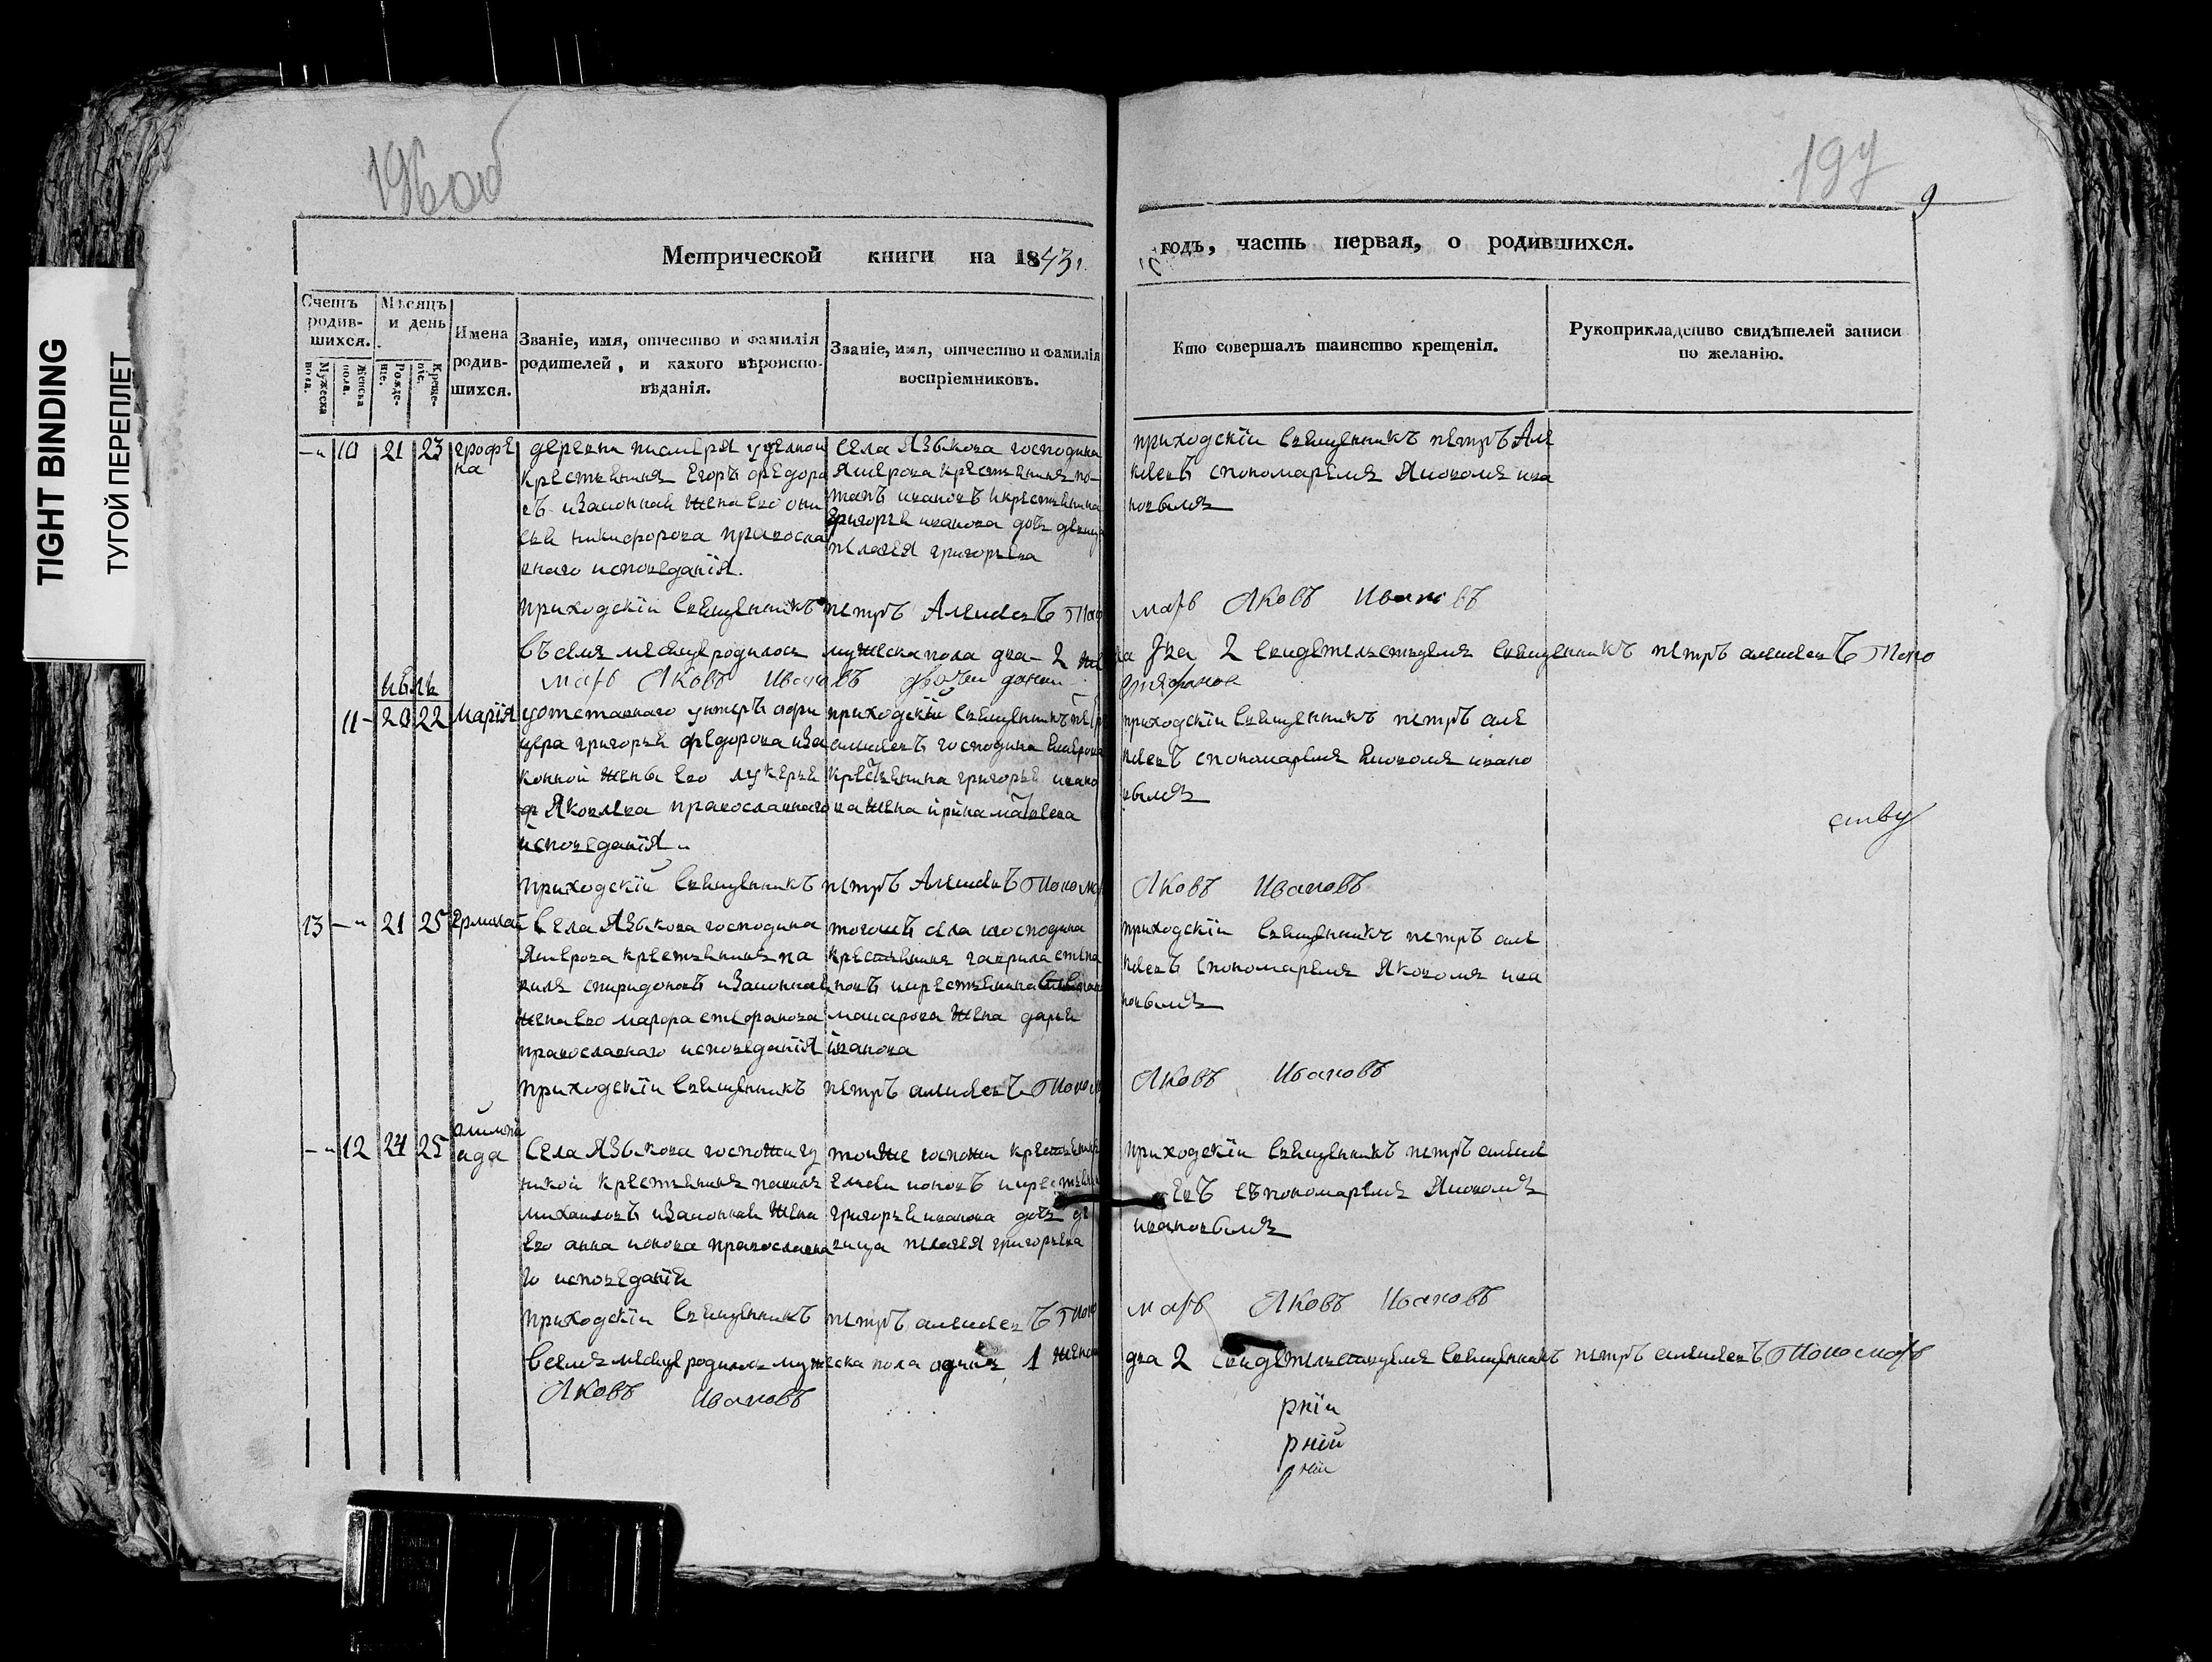 TIGHT BINDING
ТУГОЙ ПЕРЕПЛЕТ
196 об
197
9
Метрической книги на 1843 г.
годъ, часть первая, о родившихся.
Счетъ родившихся.
Мужеска пола.
Женска пола.
Мѣсяцъ и день
Рожденіе.
Крещеніе.
Имена родившихся.
Званіе, имя, отчество и фамилія родителей, и какого вѣроисповѣданія.
Званіе, имя, отчество и фамилія воспріемниковъ.
Кто совершалъ таинство крещенія.
Рукоприкладство свидѣтелей записи по желанію.
10 21 23
деревни удельнои
крестьянинъ Егоръ федоро
въ изаконная жена его
никифорова правосла
внаго исповеданія.
села Языкова господина
крестьянинъ по
тапъ ивановъ икрестьянина
григорья иванова дочь девица
пелагея григорьева
приходскіи священникъ петръ Але
ксеевъ спономаремъ Яковомъ ива
новымъ
приходскіи священникъ петръ Алексеевъ Поно
марь Яковъ Ивановъ
въ семъ месяце родилось мужеска пола два 2
два 2 свидетельствуемъ священникъ петръ алексеевъ Поно
марь Яковъ Ивановъ
июль
11 20 22 Марія
уотставнаго унтеръ афи
цера григорья федорова иза
конной жены его лукерьи
Яковлева православнаго
исповеданія
приходскій священникъ петръ
алексеевъ господина
крестьянина григорья ивано
ва жена ирина матвеева
приходскіи священникъ петръ але
ксеевъ спономаремъ Яковомъ ивано
вымъ
ству
приходскій священникъ петръ Алексеевъ Поном
Яковъ Ивановъ
13 21 25 Ермилай
Села Языкова господина
крестьянинъ па
велъ спиридоновъ изаконная
жена его марфа стефанова
православнаго исповеданія
тогожъ села господина
крестьянинъ гаврила степа
новъ икрестьянина
макарова жена дарья
иванова
приходскіи священникъ петръ але
ксеевъ спономаремъ Яковомъ ива
новымъ
приходскіи священникъ петръ алексеевъ Поном
Яковъ Ивановъ
12 24 25 алимпіада
Села Языкова госпожи
крестьянинъ павелъ
михаиловъ изаконная жена
его анна ионова православна
го исповеданія
тоиже госпожи крестьянинъ
ионовъ икрестьянина
григорья иванова дочь де
вица пелагея григорьева
приходскіи священникъ петръ алексе
евъ съпономаремъ Яковомъ
ивановымъ
приходскіи священникъ петръ алексеевъ Поно
марь Яковъ Ивановъ
Всемъ месяце родилось мужеска пола одинъ 1 женска
два 2 свидетельствуемъ священникъ петръ алексеевъ Пономарь
Яковъ Ивановъ
рніи
рній
рніи